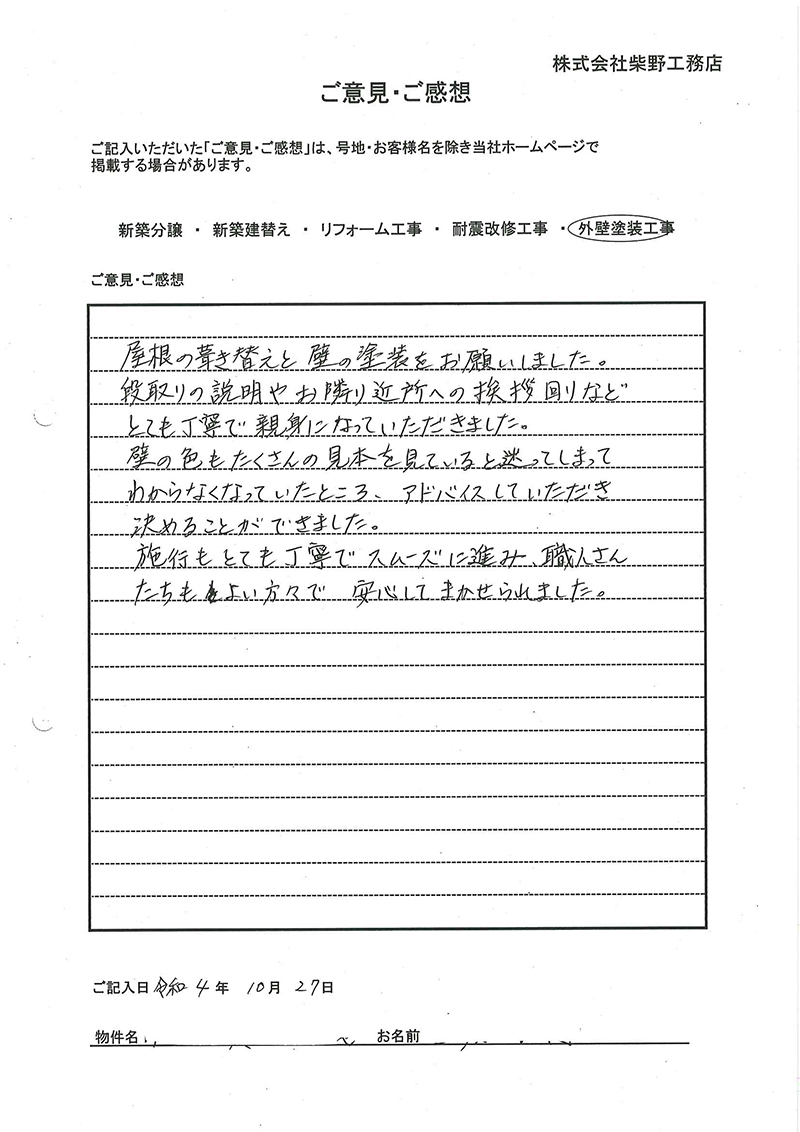 株式会社柴野工務店
ご意見・ご感想
ご記入いただいた「ご意見・ご感想」は、号地・お客様名を除き当社ホームページで
掲載する場合があります。
新築分譲 ・ 新築建替え ・ リフォーム工事 ・ 耐震改修工事 ・ 外壁塗装工事
ご意見・ご感想
屋根の葺き替えと壁の塗装をお願いしました。
段取りの説明やお隣り近所への挨拶回りなど
とても丁寧で親身になっていただきました。
壁の色もたくさんの見本を見ていると迷ってしまって
わからなくなっていたところ、アドバイスしていただき
決めることができました。
施行もとても丁寧でスムーズに進み、職人さん
たちもよい方々で 安心してまかせられました。
ご記入日 令和 4 年 10 月 27 日
物件名 お名前